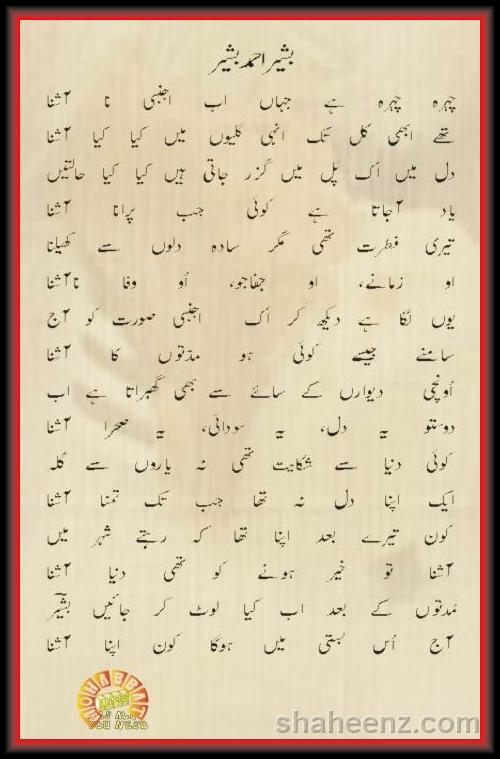 بشیر احمد بشیر
چہرہ چہرہ ہے جہاں اب اجنبی نا آشنا
تھے ابھی کل تک انہی گلیوں میں کیا کیا آشنا
دل میں اک پل میں گزر جاتی ہیں کیا کیا حالتیں
یاد آجاتا ہے کوئی جب پرانا آشنا
تیری فطرت تھی مگر سادہ دلوں سے کھیلنا
او زمانے، او جفاجو، او وفا نا آشنا
یوں لگا ہے دیکھ کر اک اجنبی صورت کو آج
سامنے جیسے کوئی ہو مدّتوں کا آشنا
اُونچی دیواروں کے سائے سے بھی گھبراتا ہے اب
دوستو یہ دل، یہ سودائی، یہ صحرا آشنا
کوئی دنیا سے شکایت تھی نہ یاروں سے گلہ
ایک اپنا دل نہ تھا جب تک تمنا آشنا
کون تیرے بعد اپنا تھا کہ رہتے شہر میں
آشنا تو خیر ہونے کو تھی دنیا آشنا
مُدتوں کے بعد اب کیا لوٹ کر جائیں بشیؔر
آج اُس بستی میں ہوگا کون اپنا آشنا
MOHABBAT
LOVE
IS ALL
YOU NEED
shaheenz.com